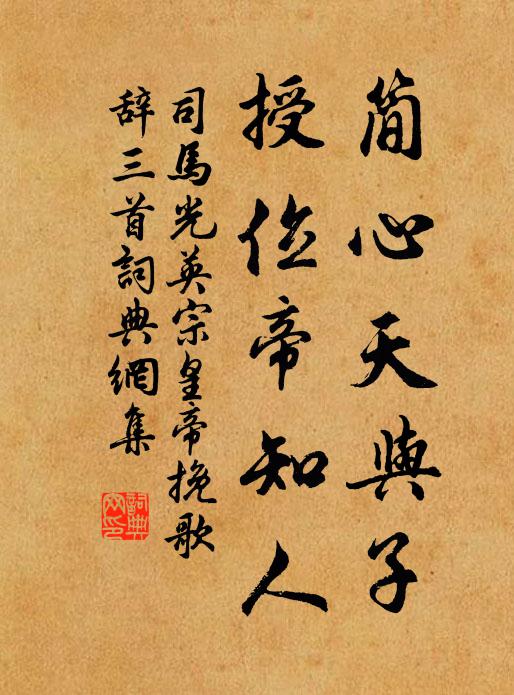 简心天與子
授位帝知人
司馬光英宗皇帝挽歌
辞三首詞典網集
詞典